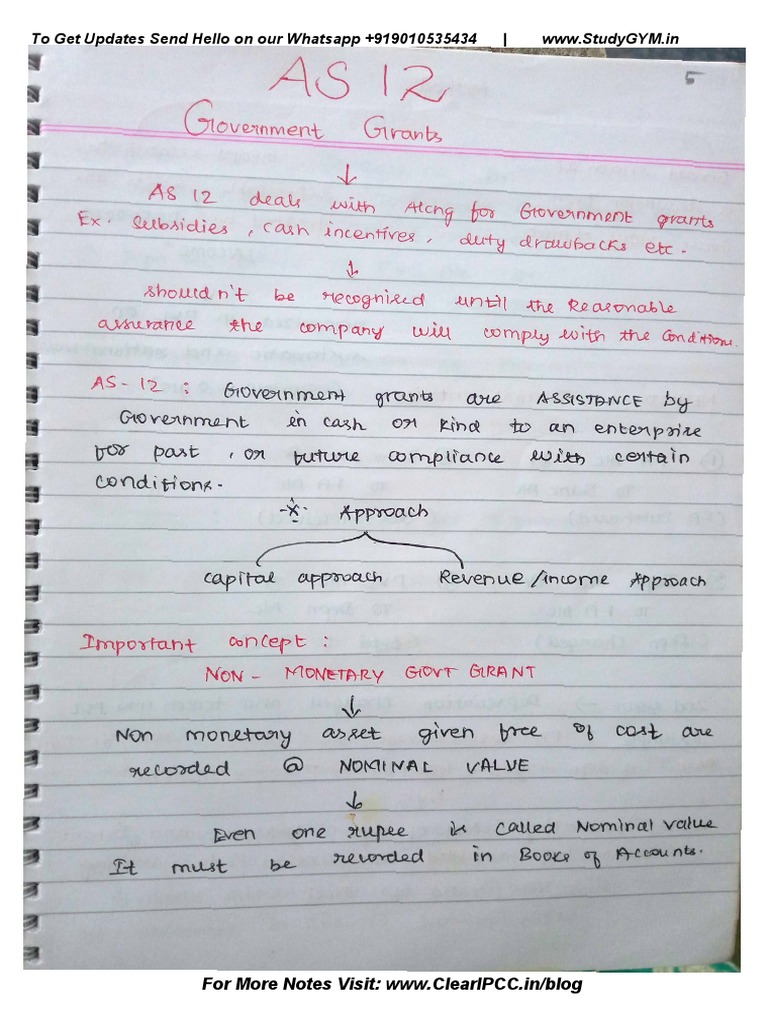 To Get Updates Send Hello on our Whatsapp +919010535434 | www.StudyGYM.in
5
AS 12
Government Grants
AS 12 deals with Atcng for Government grants
Ex. Subsidies, cash incentives, duty drawbacks etc.
Shouldn't be recognised until the Reasonable
assurance the company will comply with the Conditions.
AS-12: Government grants are ASSISTANCE by
Government in cash or kind to an enterprise
for past, or future compliance with certain
conditions.
Approach
Capital approach Revenue/income Approach
Important concept:
NON - MONETARY GOVT GRANT
Non monetary asset given free of cost are
recorded @ NOMINAL VALUE
Even one rupee is called Nominal value
It must be recorded in Books of Accounts.
For More Notes Visit: www.ClearIPCC.in/blog